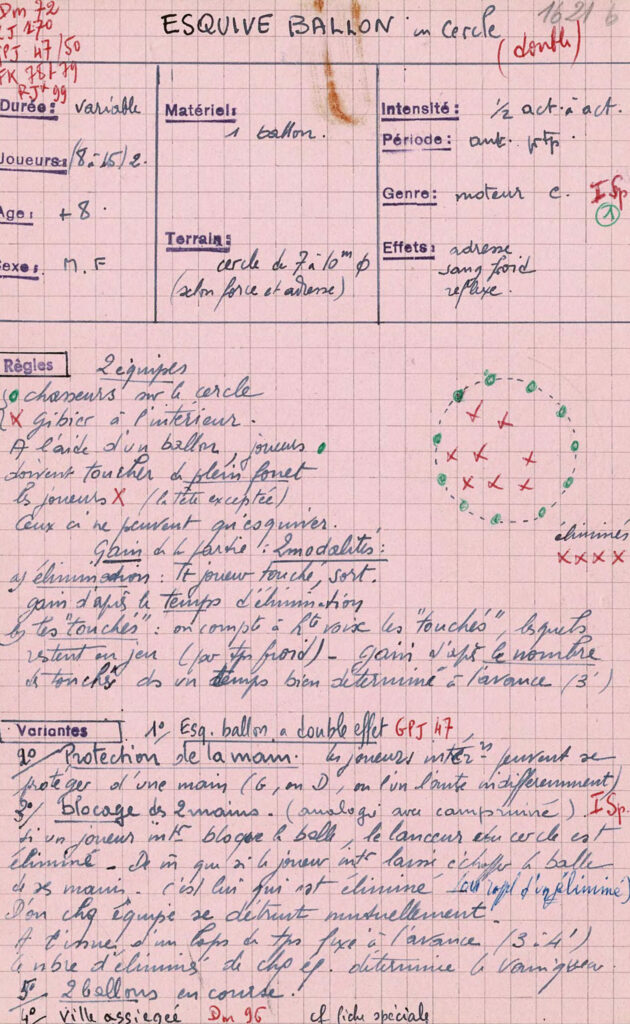 Dm 72
RJ 170
GPJ 47/50
FK 78+79
RJ* 99
ESQUIVE BALLON en Cercle
(double)
1621 b
Durée : variable
Joueurs : (8 à 15) 2.
Age : + 8.
Sexe : M. F
Matériel :
1 ballon.
Terrain :
cercle de 7 à 10 m φ
(selon force et adresse)
Intensité : 1/2 act. à act.
Période : ant. ptp
Genre : moteur c. I Sp
1
Effets : adresse
sang froid
réflexe.
Règles
2 équipes
o chasseurs sur le cercle
x Gibier à l'intérieur.
A l'aide d'un ballon, joueurs o
doivent toucher de plein fouet
les joueurs X (la tête exceptée)
Ceux ci ne peuvent qu'esquiver.
éliminés
x x x x
Gain de la partie : 2 modalités :
a) élimination : Tt joueur touché, sort.
gain d'après le temps d'élimination
b) les "touchés" : on compte à hte voix les "touchés", lesquels
restent en jeu (par tps froid) - gain d'après le nombre
de touchés ds un temps bien déterminé à l'avance (3')
Variantes
1°/ Esq. ballon a double effet GPJ 47
2°/ Protection de la main. les joueurs intérrs peuvent se
protéger d'une main (G, ou D, ou l'un l'autre indifféremment)
3°/ blocage des 2 mains. (analogie avec camp ruiné). I Sp.
Si un joueur intr bloque la balle, le lanceur du cercle est
éliminé - De m̂ que si le joueur intr laisse échapper la balle
de ses mains. c'est lui qui est éliminé (ou rapel d'un éliminé)
D'où chq équipe se détruit mutuellement.
A l'issue d'un laps de tps fixé à l'avance (3 à 4')
le nbre d'éliminés de chq éq. détermine le vainqueur.
5°/ 2 ballons en course.
4°/ Ville assiégée Dm 96 cf fiche spéciale